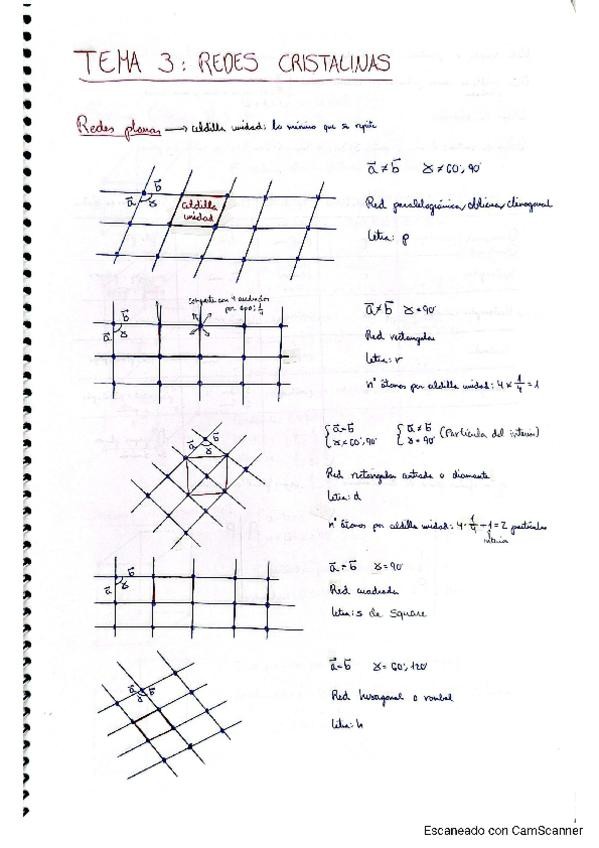 TEMA 3: REDES CRISTALINAS
Redes planas → celdilla unidad: lo mínimo que se repite
a b γ
celdilla
unidad
a ≠ b γ ≠ 60, 90
Red paralelográmica, oblicua, clinogonal
Letra: p
comparte con 4 cuadrados
por eso: 1/4
a b γ
a ≠ b γ = 90
Red rectangular
Letra: r
nº átomos por celdilla unidad: 4 × 1/4 = 1
a b γ
a = b a ≠ b (Partícula del interior)
γ ≠ 60, 90 γ = 90
Red rectangular centrada o diamante
Letra: d
nº átomos por celdilla unidad: 4 · 1/4 + 1 = 2 partículas
interior
a b γ
a = b γ = 90
Red cuadrada
Letra: s de Square
a b
a = b γ = 60, 120
Red hexagonal o rombal
Letra: h
Escaneado con CamScanner